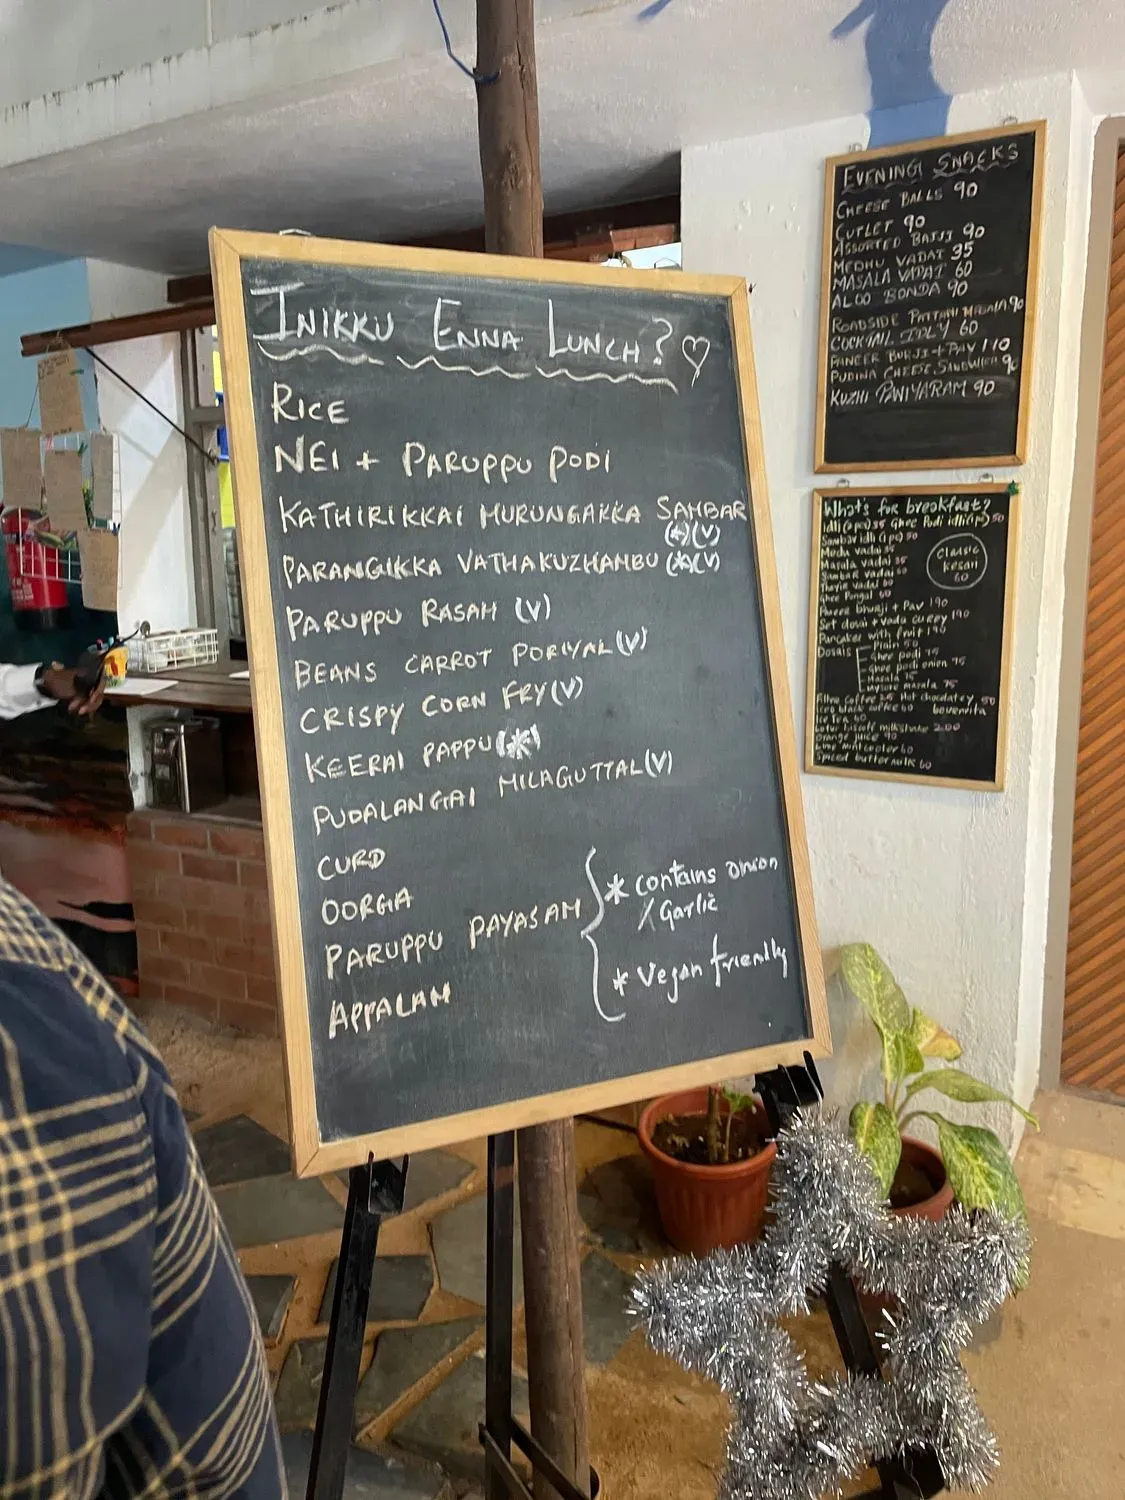 INIKKU ENNA LUNCH? ♡
RICE
NEI + PARUPPU PODI
KATHIRIKKAI MURUNGAKKA SAMBAR
(*)(V)
PARANGIKKA VATHAKUZHAMBU (*)(V)
PARUPPU RASAM (V)
BEANS CARROT PORIYAL (V)
CRISPY CORN FRY (V)
KEERAI PAPPU (*)
PUDALANGAI MILAGUTTAL (V)
CURD
OORGA
PARUPPU PAYASAM
APPALAM
* contains onion
/Garlic
* Vegan friendly
EVENING SNACKS
CHEESE BALLS 90
CUTLET 90
ASSORTED BAJJI 90
MEDHU VADAI 35
MASALA VADAI 60
ALOO BONDA 90
ROADSIDE PATTANI 90
COCKTAIL IDLY 60
PANEER BURJI + PAV 110
PUDINA CHEESE SANDWICH
KUZHI PANIYARAM 90
What's for breakfast?
Idli (2ps) 35 Ghee Podi idli 50
Sambar idli (1ps) 50
Medu vada 35
Masala vada 35
Classic
Kesari
60
Pongal 60
bhurji + Pav 190
Set dosai + Vada curry 190
Pancake with fruit 190
Dosais
Plain 50
Ghee podi 75
Ghee podi onion 75
Masala 75
Mysore masala 75
Filter Coffee 25 Hot chocolatey 50
bournvita
Ice Tea 60
milkshake 200
90
Spiced buttermilk 60